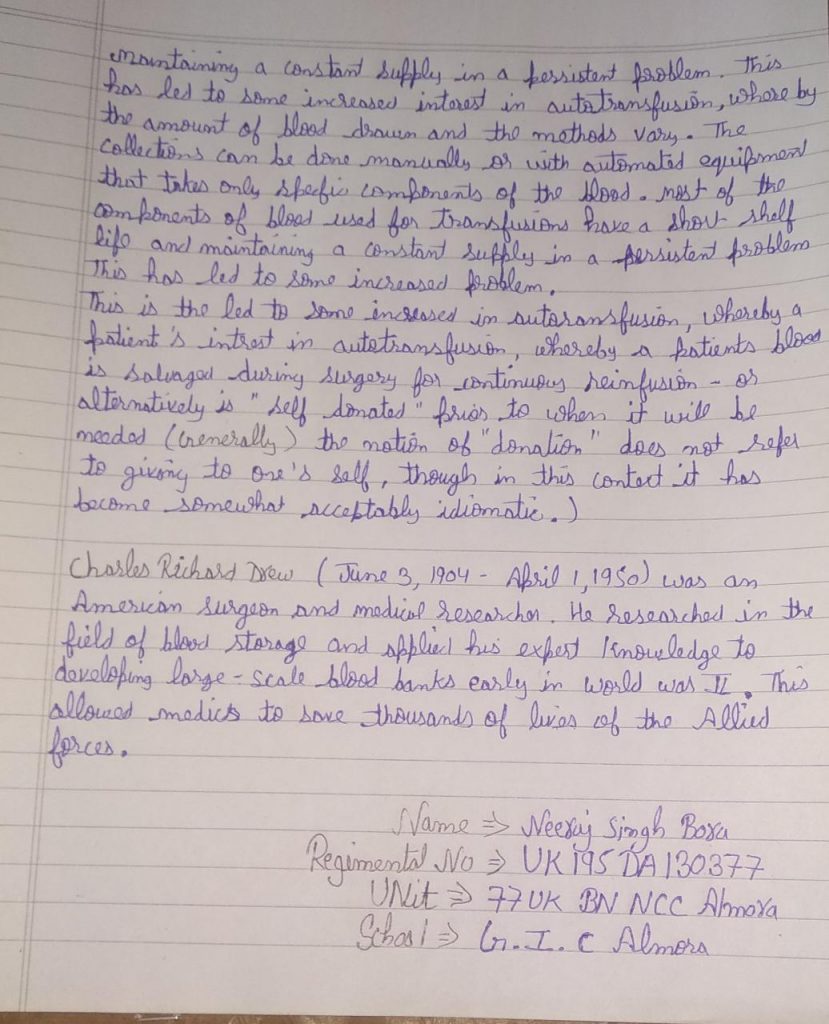 maintaining a constant supply in a persistent problem. This
has led to some increased interest in autotransfusion, whose by
the amount of blood drawn and the methods vary. The
collections can be done manually or with automated equipment
that takes only specfic components of the blood. most of the
components of blood used for transfusions have a short shelf
life and maintaining a constant supply in a persistent problem
This has led to some increased problem.
This is the led to some increased in autoransfusion, whereby a
patient's intrest in autotransfusion, whereby a patients blood
is salvaged during surgery for continuous reinfusion - or
alternatively is "self donated" prior to when it will be
needed (Generally) the notion of "donation" does not refer
to giving to one's self, though in this context it has
become somewhat acceptably idiomatic.)
Charles Richard Drew (June 3, 1904 - April 1, 1950) was an
American surgeon and medical researcher. He researched in the
field of blood storage and applied his expert knowledge to
developing large-scale blood banks early in world war II. This
allowed medics to save thousands of lives of the Allied
forces.
Name ⇒ Neeraj Singh Bora
Regimental No ⇒ UK19SDA130377
UNit ⇒ 77 UK BN NCC Almora
School ⇒ G.I.C Almora